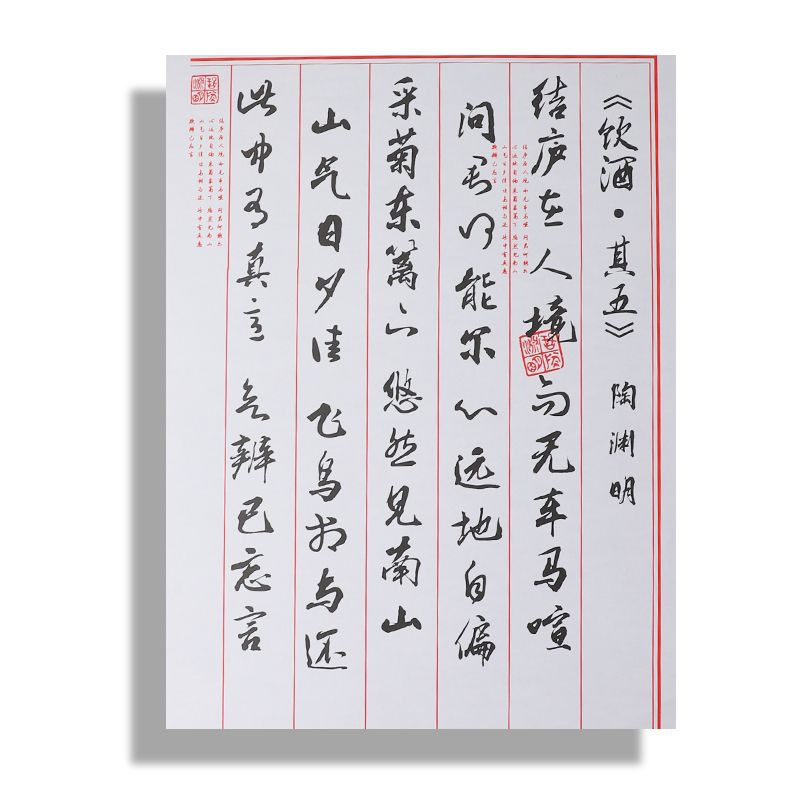 《饮酒·其五》 陶渊明
结庐在人境 而无车马喧
问君何能尔 心远地自偏
采菊东篱下 悠然见南山
山气日夕佳 飞鸟相与还
此中有真意 欲辨已忘言